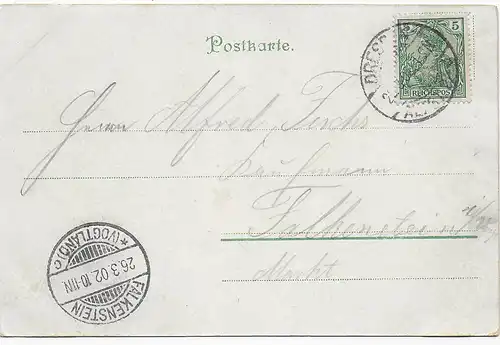 Postkarte.
5
REICHSPOST
DRESDEN
Herrn Alfred
Kaufmann
Falkenstein i/V.
Markt
*(VOGTLAND) C
26.3.02.10-11N
FALKENSTEIN